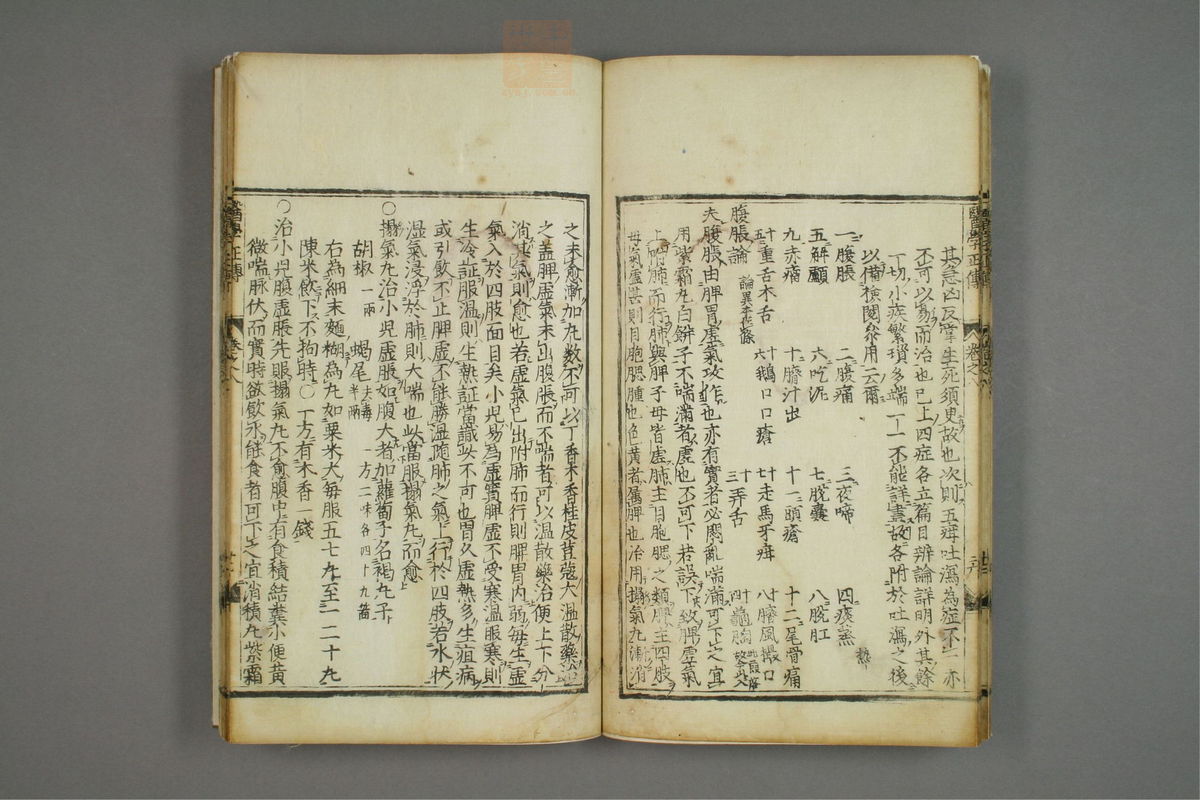 其急凶反掌生死須臾故也次則五疳吐瀉為症不一亦
不可以易而治也已上四症各立篇目辨論詳明外其餘
一切小疾繁瑣多端一一不能詳盡故各附於吐瀉之後
以備檢閱參用云爾
一腹脹 二腹痛 三夜啼 四痰熱
五解顱 六吃泥 七脫囊 八脫肛
九赤痛 十臍汁出 十一頭瘡 十二尾骨痛
十五重舌木舌 十六鵝口口瘡 十七走馬牙疳 十八臍風撮口
腹脹論 十三弄舌
夫腹脹由脾胃虛氣攻作也亦有實者必悶亂喘滿可下之宜
用紫霜丸白餅子不喘滿者虛也不可下若誤下致脾虛氣
上附肺而行肺與脾子母皆虛肺主目胞腮之類脾主四肢
母氣虛甚則目胞腮腫也色黃者屬脾也治用搨氣丸漸消
醫學正傳 卷之八
之未愈漸加丸數不可以丁香木香桂皮荳蔻大溫散藥治
之盖脾虛氣未出腹脹而不喘者可以溫散藥治使上下分
消其氣則愈也若虛氣已出附肺而行則脾胃內弱每生虛
氣入於四肢面目矣小兒易為虛實脾虛不受寒溫服寒則
生冷証服溫則生熱証當識此不可也胃久虛熱多生疽病
或引飲不止脾虛不能勝濕隨肺之氣上行於四肢若水狀
濕氣浸浮於肺則大喘也此當服搨氣丸而愈
○搨氣丸治小兒虛脹如腹大者加蘿蔔子名褐丸子
胡椒一兩 蝎尾去毒半兩 一方二味各四十九箇
右為細末麵糊為丸如粟米大每服五七丸至一二十丸
陳米飲下不拘時○一方有木香一錢
○治小兒腹虛脹先服搨氣丸不愈腹中有食積結糞小便黃
微喘脉伏而實時欲飲水能食者可下之宜消積丸紫霜
醫學正傳 卷之八